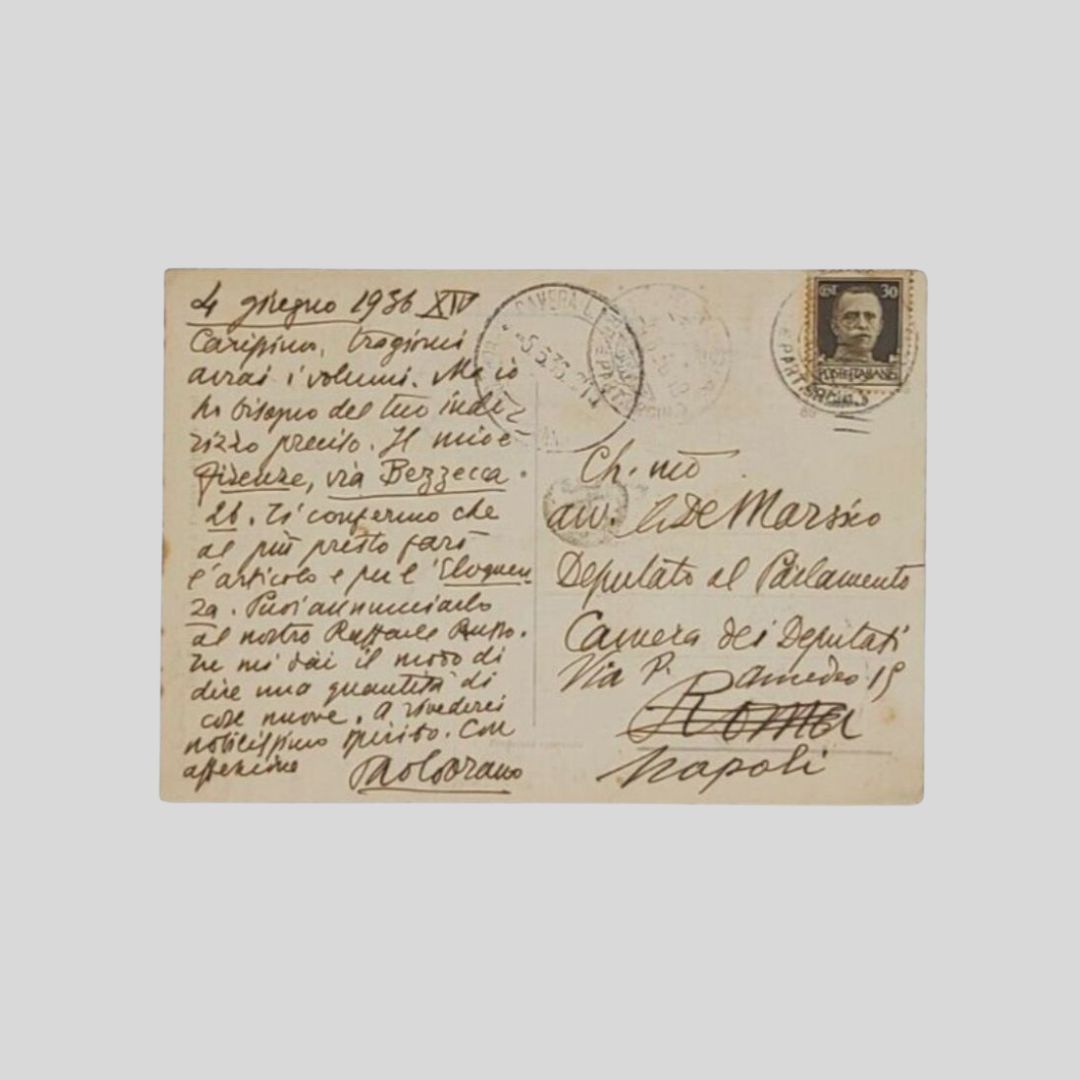 4 giugno 1936 XIV
Carissimo, tra giorni
avrai i volumi. Ma io
ho bisogno del tuo indi-
rizzo preciso. Il mio è
Firenze, via Bezzecca
26. Ti confermo che
al più presto farò
l'articolo e per l'Eloquen
za. Puoi annunciarlo
al nostro Raffaele Russo.
Tu mi dai il modo di
dire una quantità di
cose nuove. A rivederci
nobilissimo spirito. Con
affezione Paolo Orano
CAMERA
5.6.36
CENT 30
POSTE ITALIANE
Ch.mo
avv. De Marsico
Deputato al Parlamento
Camera dei Deputati
Via P. Amedeo 15
Roma
Napoli